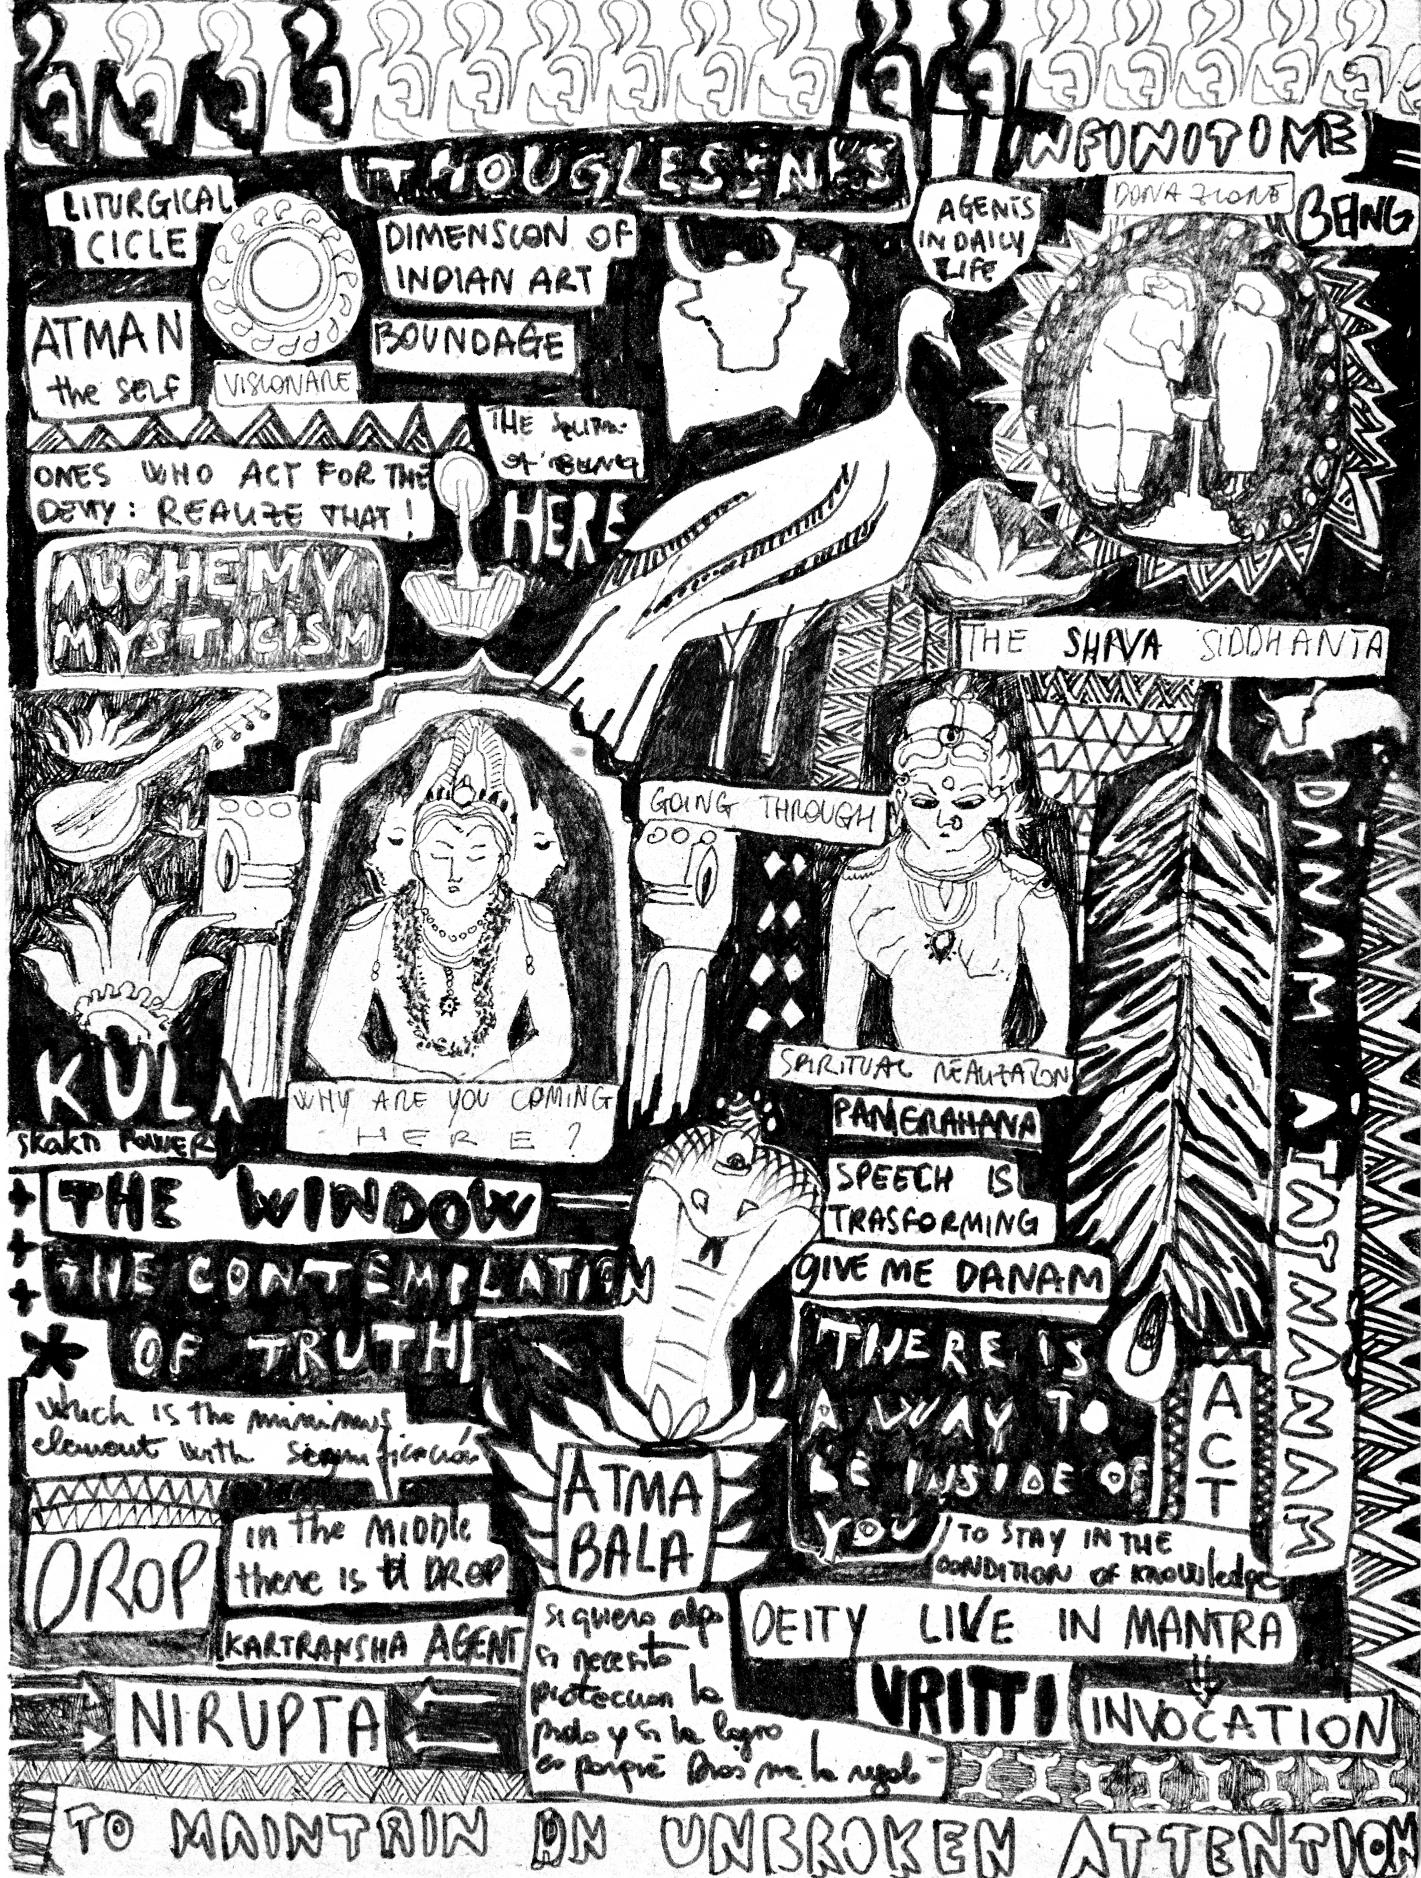 INFINITIME
THOUGLESSNES
DONAZIONE
BEING
LITURGICAL
CICLE
DIMENSION OF
INDIAN ART
AGENTS
IN DAILY
LIFE
ATMAN
the SELF
BOUNDAGE
VISIONARE
THE
OF BEING
HERE
ONES WHO ACT FOR THE
DEITY: REALIZE THAT!
ALCHEMY
MYSTICISM
THE SHIVA SIDDHANTA
GOING THROUGH
DANAM ATATMANAM
KULA
Skakti POWER
WHY ARE YOU COMING
HERE?
SPIRITUAL REALIZATION
PAMERAHANA
SPEECH IS
TRASFORMING
GIVE ME DANAM
THE WINDOW
THE CONTEMPLATION
OF TRUTH
THERE IS
A WAY TO
BE INSIDE OF
YOU
ACT
TO STAY IN THE
CONDITION OF KNOWledge
which is the minimus
element with significación
ATMA
BALA
DROP
in the MIDDle
there is A DROP
KARTRANSHA AGENT
si quiero algo
si necesito
proteccion lo
pido y si lo logro
es porqué Dios me lo regaló
DEITY LIVE IN MANTRA
NIRUPTA
VRITTI
INVOCATION
TO MAINTAIN AN UNBROKEN ATTENTION